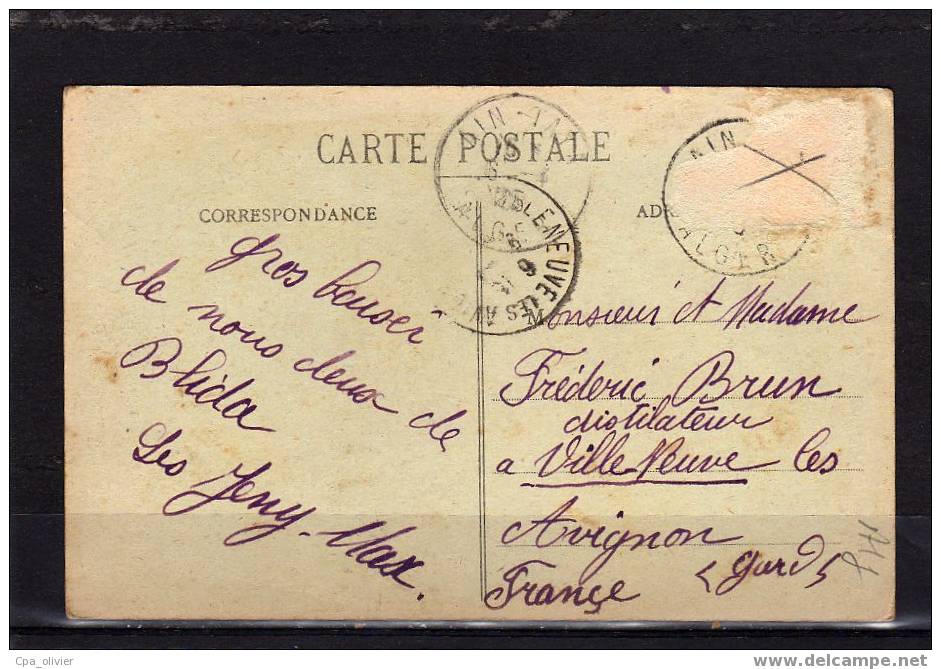 CARTE POSTALE
CORRESPONDANCE
gros baiser
de nous deux de
Blida
Leo Jeny-Max.
Monsieur et Madame
Fréderic Brun
distilateur
a Ville Neuve les
Avignon
(gard)
France
AIN
ALGER
VILLENEUVE-LES-AV
Cpa_olivier
www.delcampe.net